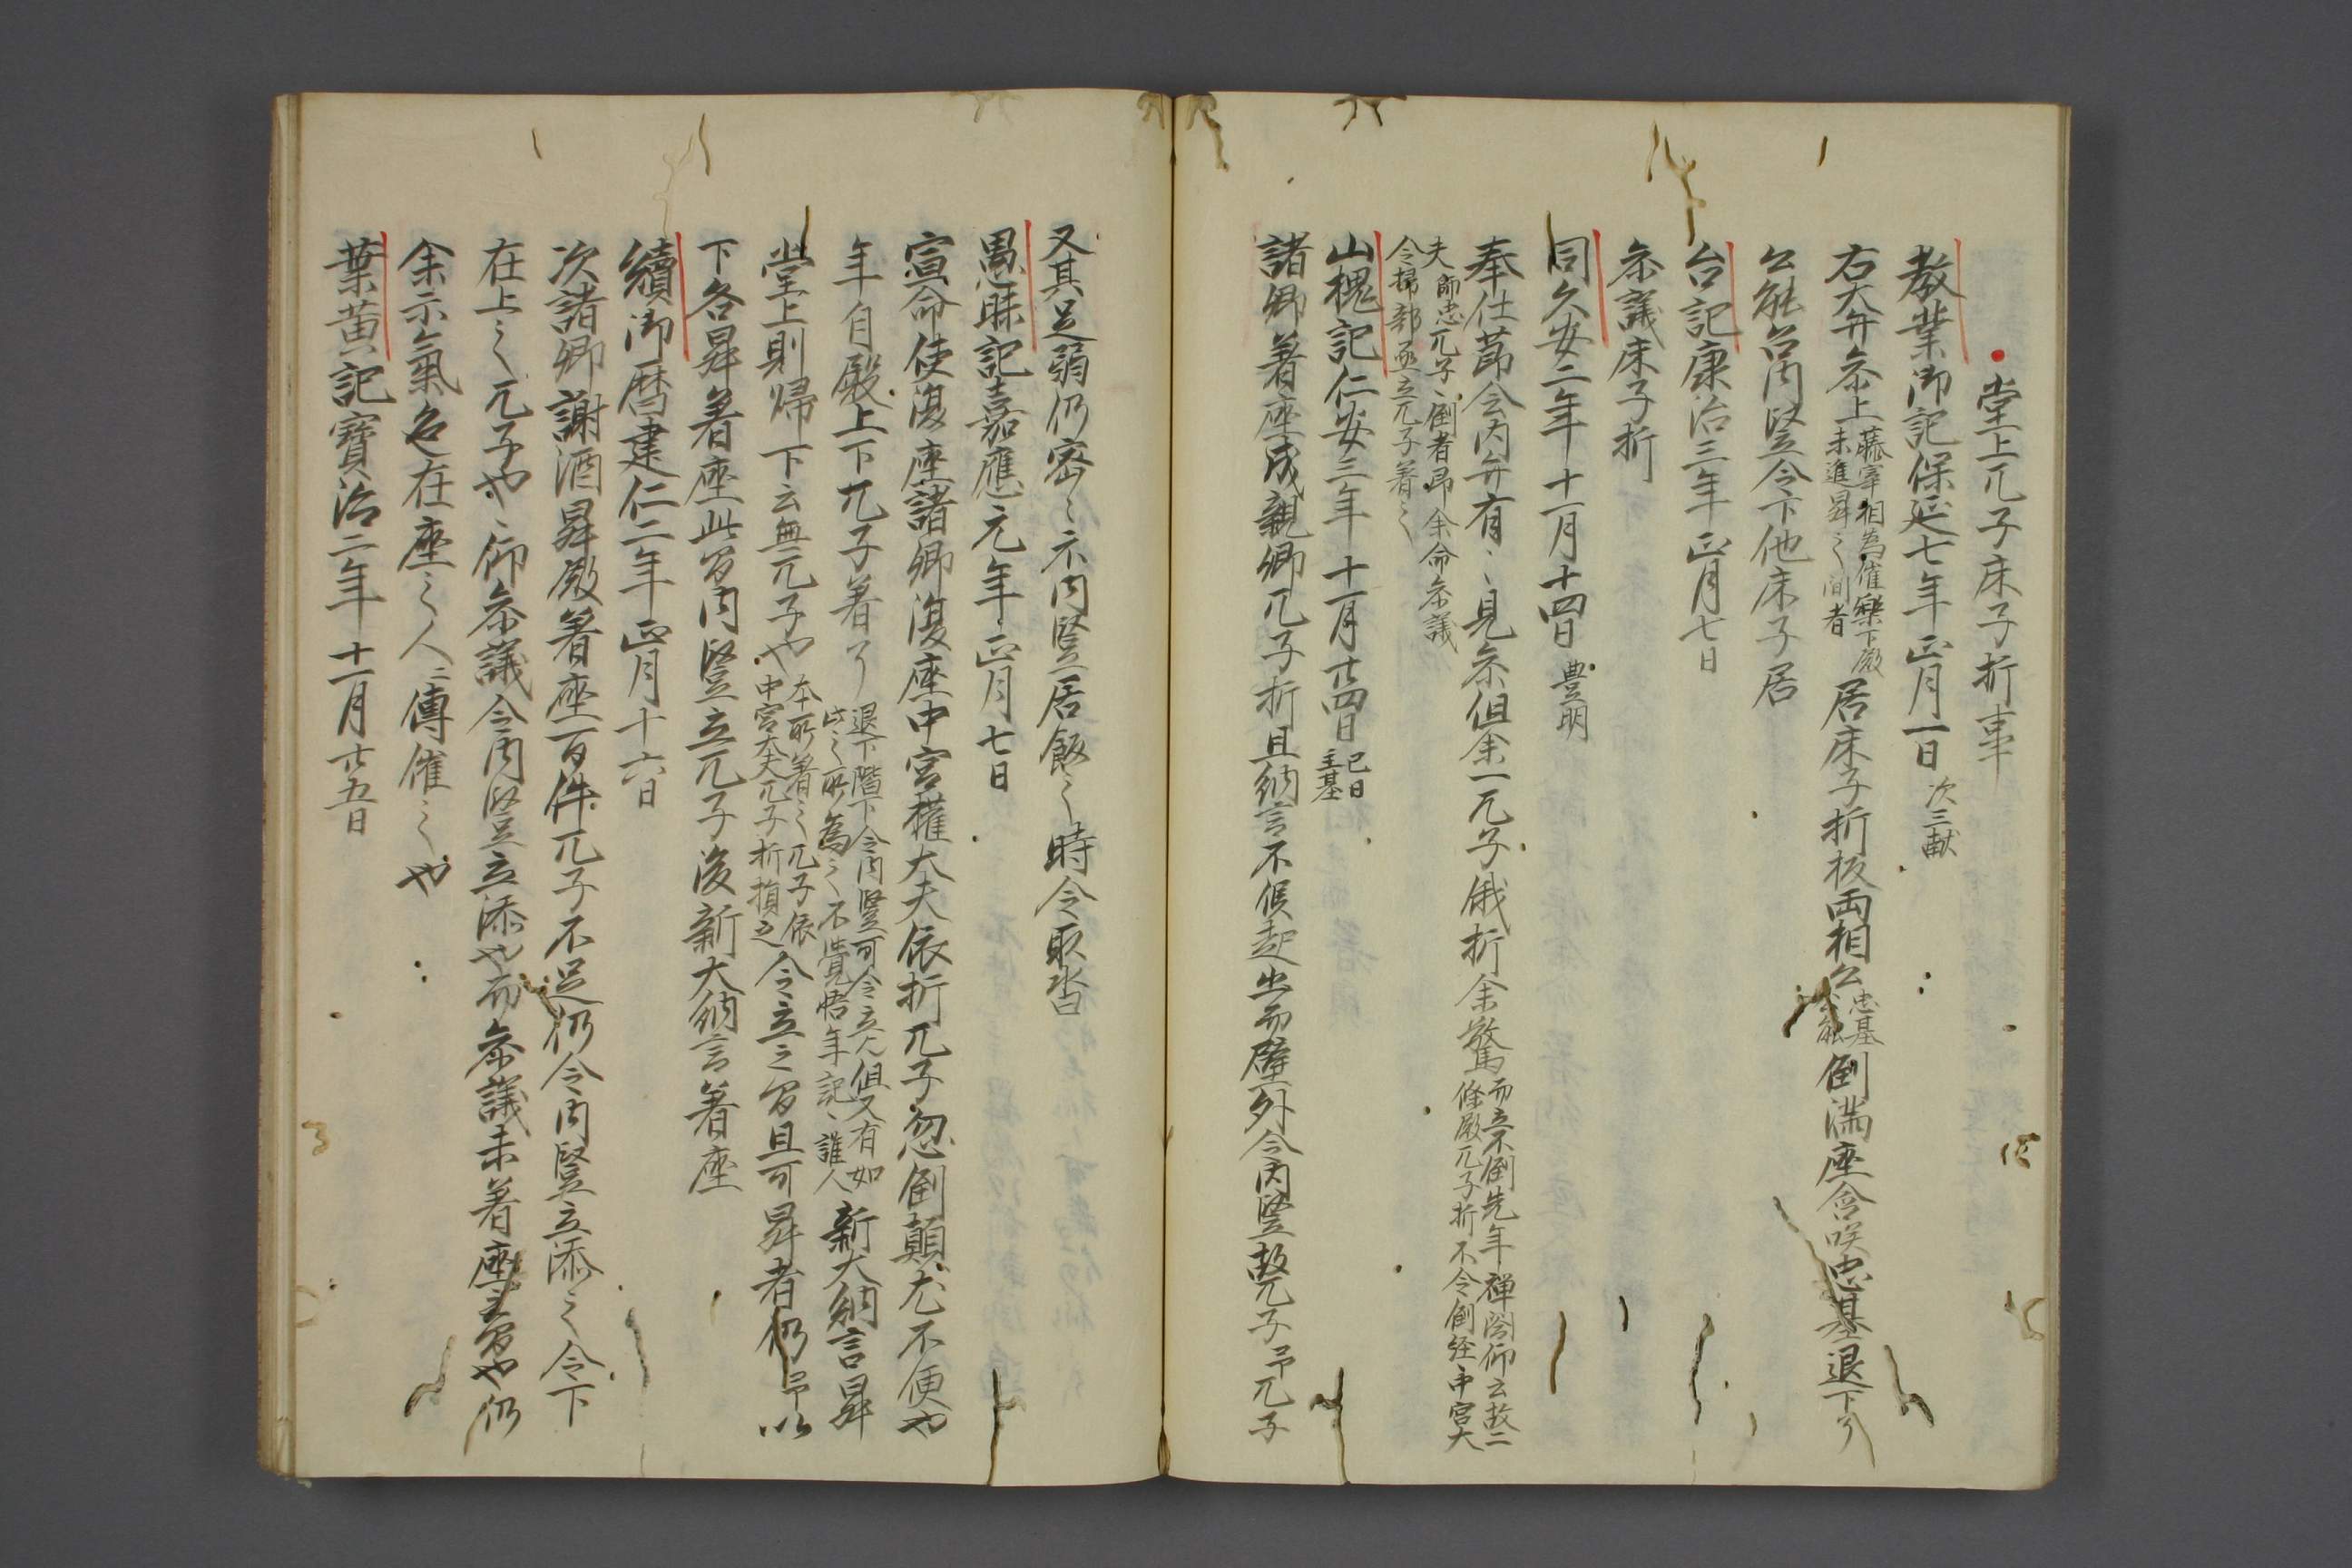 堂上兀子床子折事
教業御記保延七年正月一日次三献
右大弁参上藤宰相為催樂下殿
未進昇之間者居床子折板両相公忠基
公能倒満座含咲忠基退下了
公能召内竪令下他床子居
台記康治三年正月七日
参議床子折
同久安二年十一月十四日豊明
奉仕節会内弁有、見参但余一兀子俄折余驚而立不倒先年禅閤仰云故二
条殿兀子折不令倒経中宮大
夫師忠兀子、倒者即余命参議
令掃部丞立兀子着之
山槐記仁安三年十一月廿四日巳日
主基
諸卿著座成親卿兀子折且納言不候起出而壁外令内竪敀兀子予兀子
又其足弱仍密、示内竪居飯之時令取沓
愚昧記嘉應元年正月七日
宣命使復座諸卿復座中宮權大夫依折兀子忽倒顛尤不便也
年自殿上下兀子著了退下階下令内竪可令立欠但又有如
此之所為之不覚悟年記、誰人新大納言昇
堂上則帰下云無兀子也本所着之兀子依
中宮大夫兀子折損之令立之間且可昇者仍予以
下各昇著座此間内竪立兀子後新大納言著座
續御暦建仁二年正月十六日
次諸卿謝酒昇殿著座百件兀子不足仍令内竪立添之令下
在上之兀子也、仰参議令内竪立添也而参議未著座之間也仍
余示氣色在座之人ニ傳催之也
葉黄記寶治二年十一月廿五日